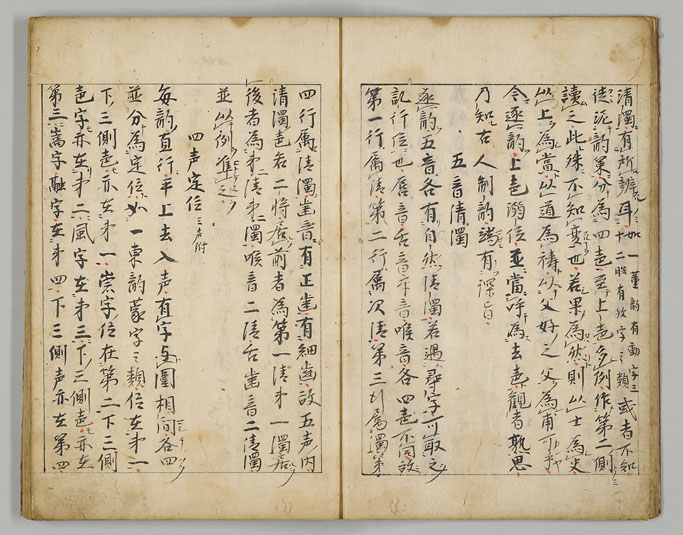 清濁有所辨耳如一董韵有動字三十二腫有攷字之類或者不知
徒泥韵果分為四声至上声多例作第二側
讀之此殊不知変也若果為然則以士為史
以上為當以道為禱以父好之父為甫可乎
今逐韵上声溺位並當浮為去声觀者熟思
乃知古人制韵端有深旨
五音清濁
逐韵五音各有自然清濁若過尋字可取之
記行位也唇音舌音牙音喉音各四声不同故
第一行属清第二行属次清第三行属濁第
四行属清濁歯音有正歯有細歯故五声内
清濁声各二将居前者為第一清第一濁居
後者為第二清第二濁喉音二清舌歯音二清濁
並以例準之
四声定位 三声附
每韵直行平上去入声有字与圍相間各四
並分為定位如一東韵蒙字之類位在第一
下三側声亦在第一崇字位在第二下三側
声字亦在第二風字在第三下三側声亦在
第三嵩字融字在第四下三側声亦在第四